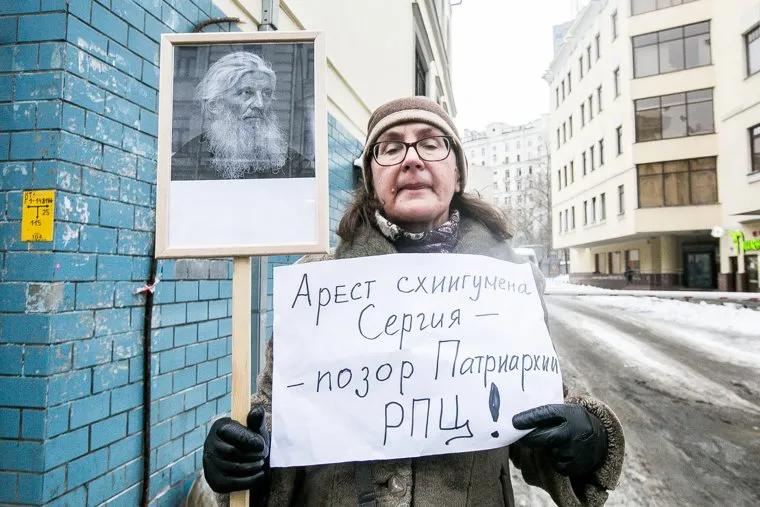 Арест схиигумена
Сергия —
— позор Патриархии
РПЦ!
115